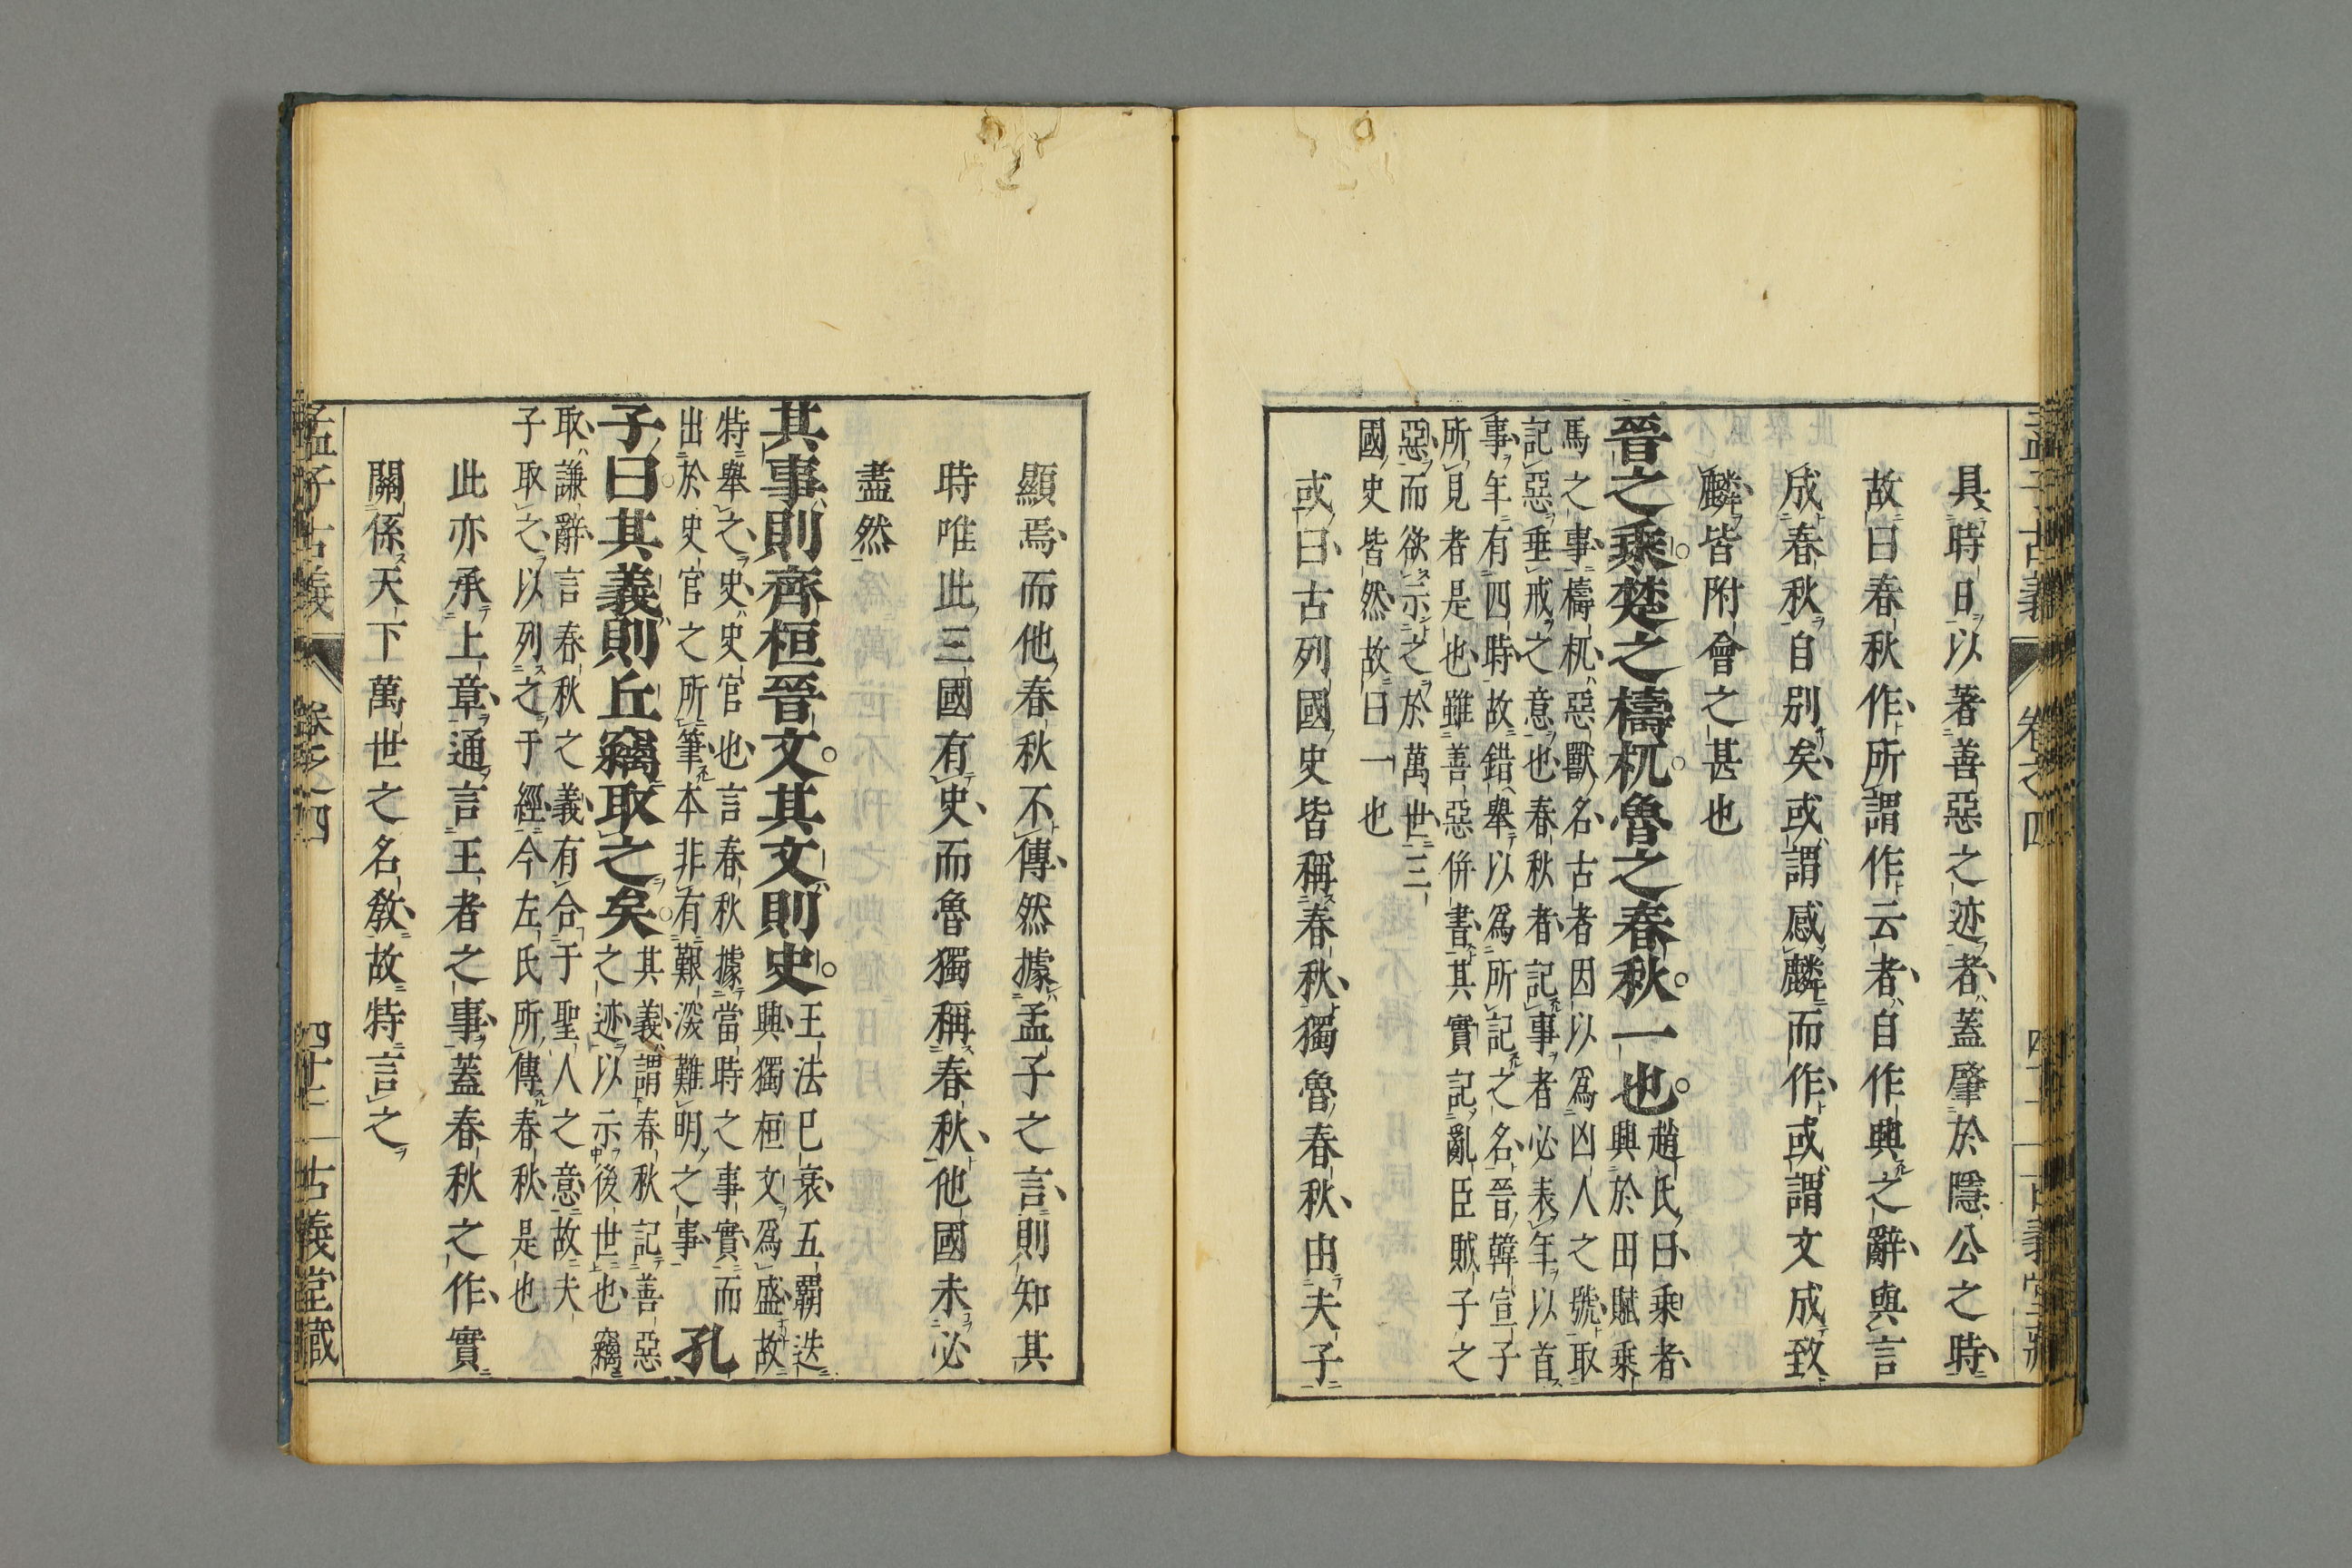 具時日以著善惡之迹者蓋肇於隱公之時
故曰春秋作所謂作云者自作與之辭與言
成春秋自別矣或謂感麟而作或謂文成致
麟皆附會之甚也
晉之乘楚之檮杌魯之春秋一也趙氏曰乘者
興於田賦乘
馬之事檮杌惡獸名古者因以爲凶人之號取
記惡垂戒之意也春秋者記事者必表年以首
事年有四時故錯舉以爲所記之名晉韓宣子
所見者是也雖善惡併書其實記亂臣賊子之
惡而欲示之於萬世三
國史皆然故曰一也
或曰古列國史皆稱春秋獨魯春秋由夫子
顯焉而他春秋不傳然據孟子之言則知其
時唯此三國有史而魯獨稱春秋他國未必
盡然
其事則齊桓晉文其文則史王法已衰五霸迭
興獨桓文爲盛故
特舉之史史官也言春秋據當時之事實而
出於史官之所筆本非有艱深難明之事孔
子曰其義則丘竊取之矣其義謂春秋記善惡
之迹以示後世也竊
取謙辭言春秋之義有合于聖人之意故夫
子取之以列之于經今左氏所傳春秋是也
此亦承上章通言王者之事蓋春秋之作實
關係天下萬世之名教故特言之
孟子古義
卷之四
四十三
古義堂藏